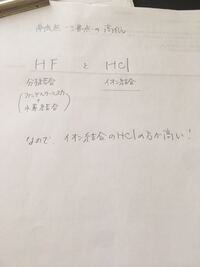 沸点・融点の高低
HF と HCl
分子結合 イオン結合
(ファンデルワールス力
+
水素結合)
なので、イオン結合のHClの方が高い！